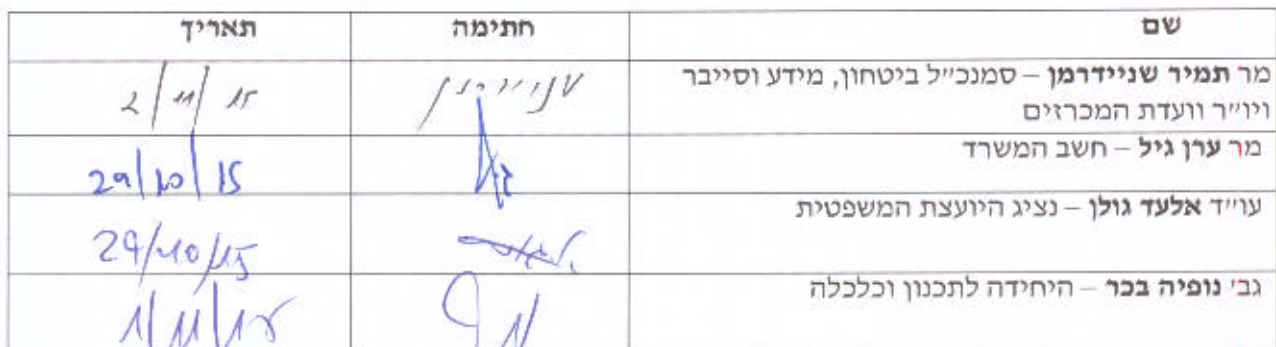 שם חתימה תאריך
מר תמיר שניידרמן – סמנכ״ל ביטחון, מידע וסייבר שניידרמן 2/11/15
ויו״ר וועדת המכרזים
מר ערן גיל – חשב המשרד 29/10/15
עו״ד אלעד גולן – נציג היועצת המשפטית 29/10/15
גב׳ נופיה בכר – היחידה לתכנון וכלכלה 1/11/15